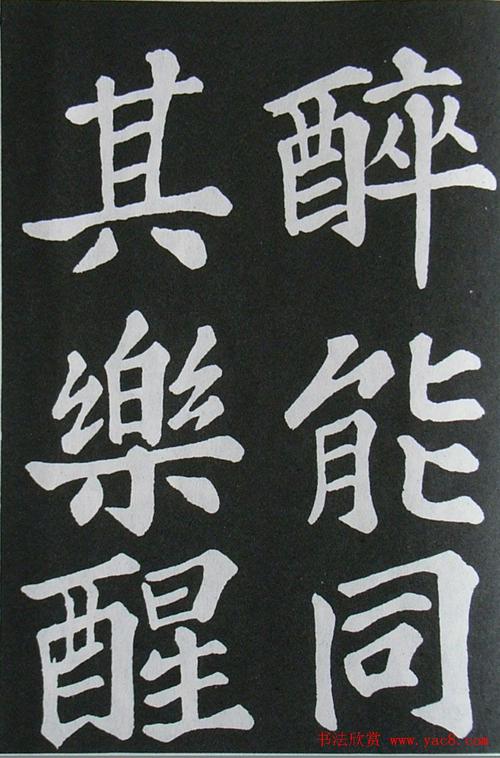 醉能同
其樂醒
书法欣赏 www.yac8.com